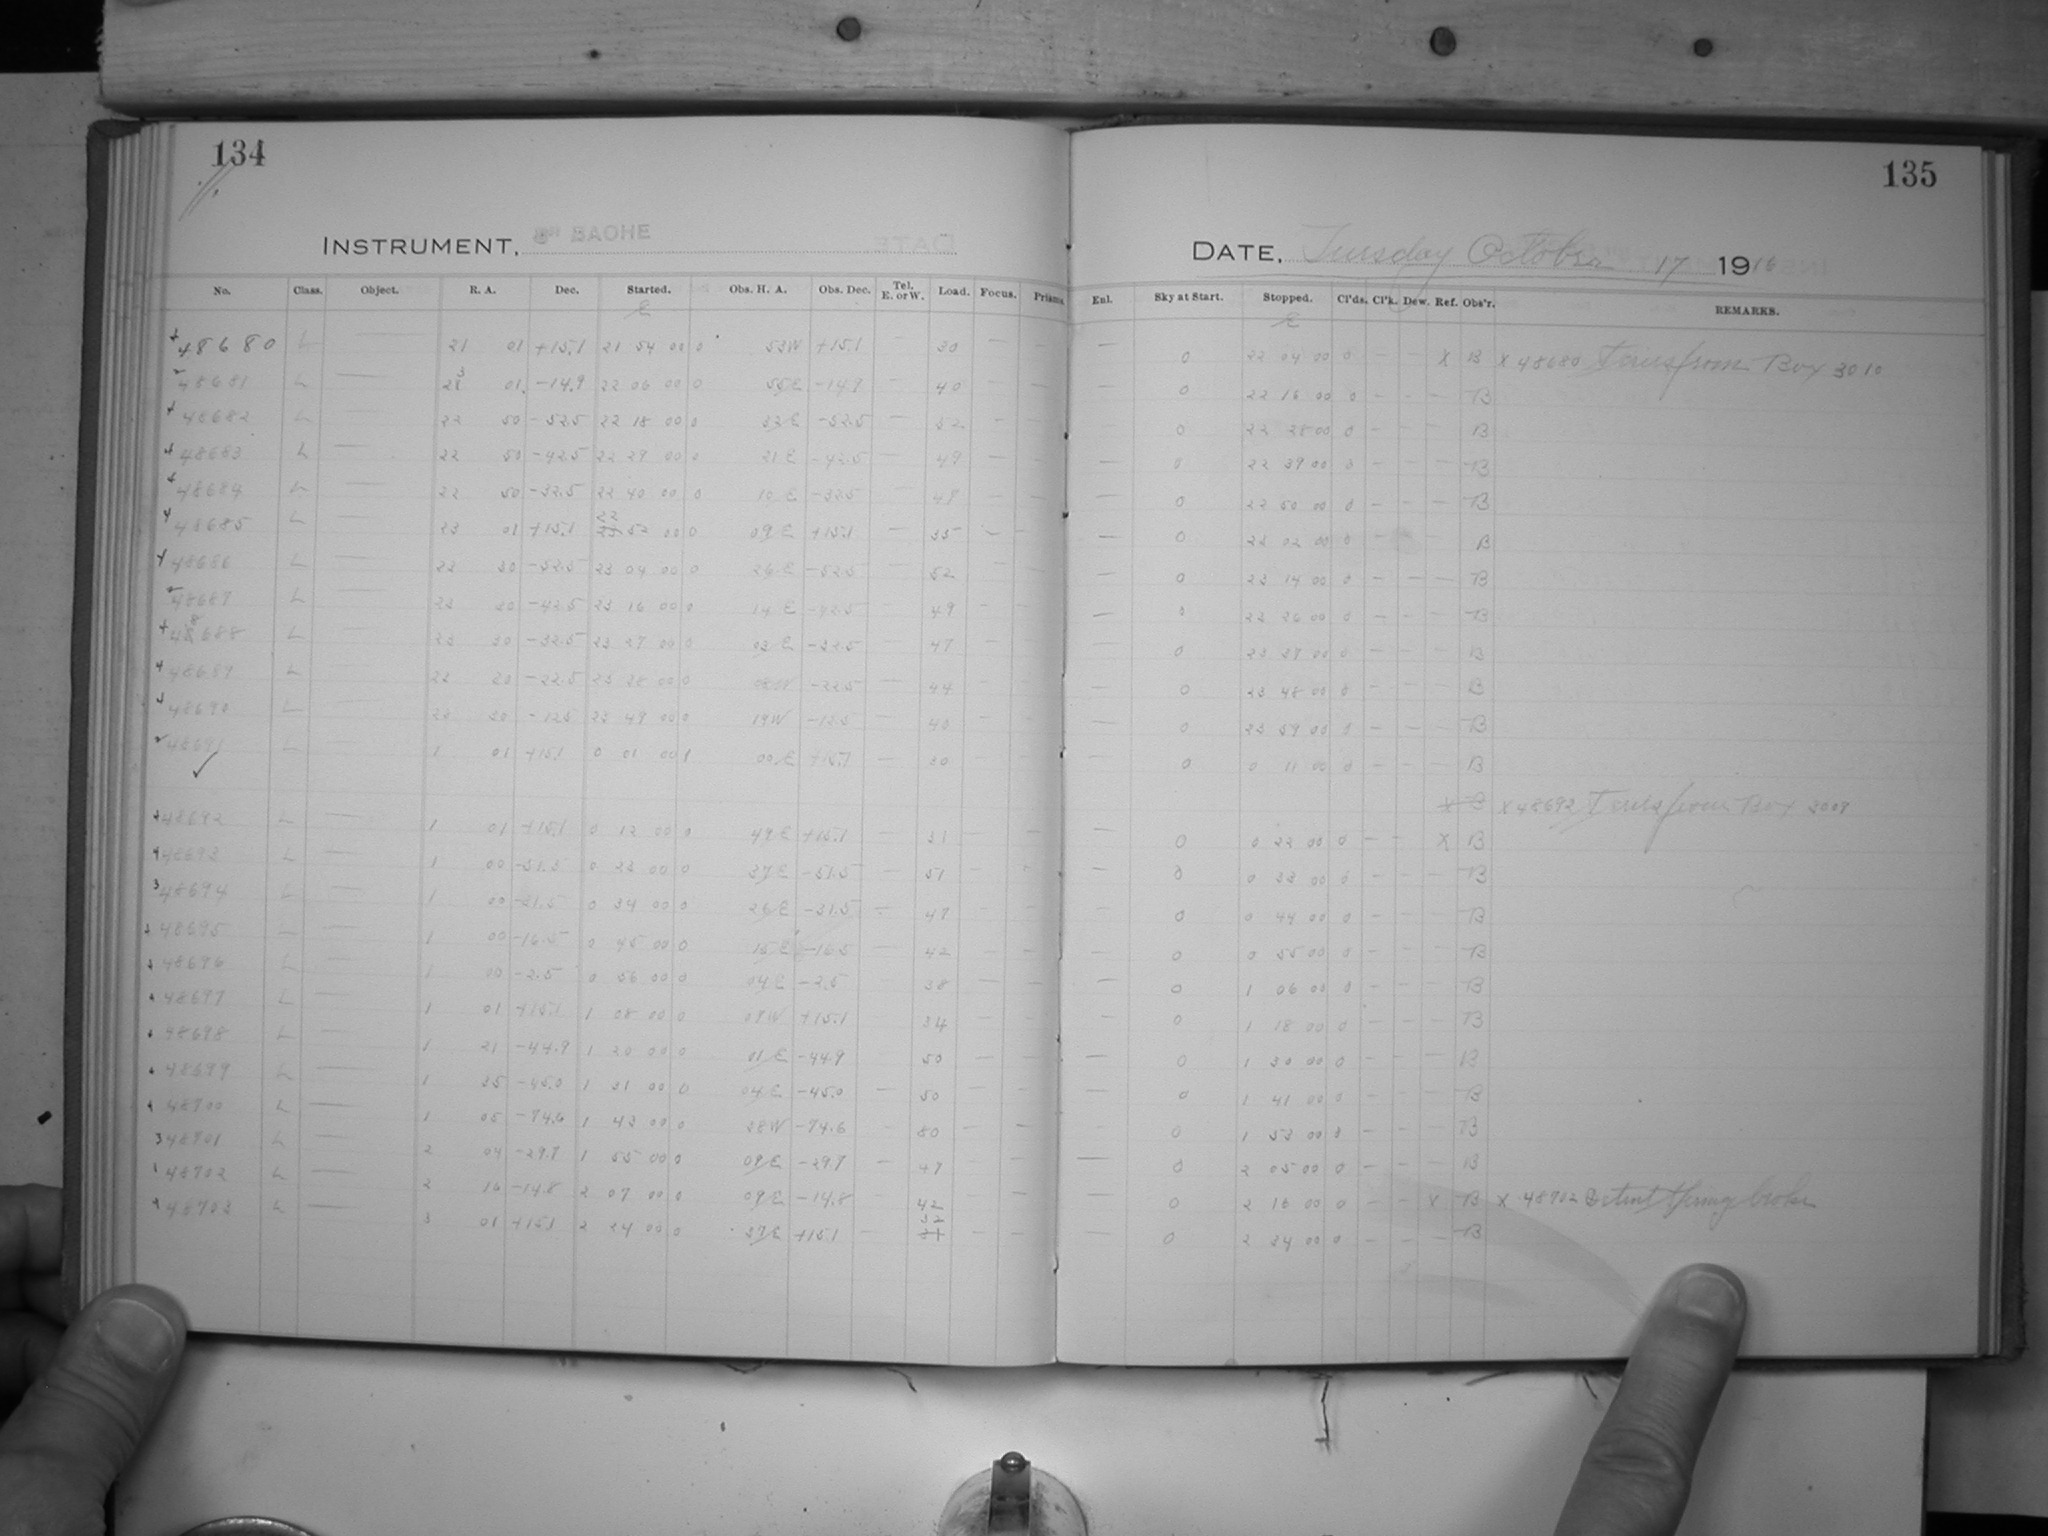 134
INSTRUMENT, 8" BACHE
No. Class. Object. R. A. Dec. Started. Obs. H. A. Obs. Dec. Tel. E. or W. Load. Focus. Prisms.
48680 L — 21 01 +15.1 21 54 00 0 53W +15.1 30 —
48681 L — 01 -14.9 22 06 00 0 55E -14.9 — 40 — —
48682 L — 22 50 -52.5 22 18 00 0 32E -52.5 — 52 — —
48683 L — 22 50 -42.5 22 29 00 0 21E -42.5 — 49 — —
48684 L — 22 50 -32.5 22 40 00 0 10E -32.5 — — —
48685 L — 23 01 +15.1 22 52 00 0 09E +15.1 — 35 — —
48686 L — 23 30 -52.5 23 04 00 0 26E -52.5 — 52 — —
48687 L — 23 30 -42.5 23 16 00 0 14E -42.5 — 49 — —
48688 L — 23 30 -32.5 23 27 00 0 03E -32.5 — 47 — —
48689 L — 23 30 -22.5 23 38 00 0 -22.5 — 44 — —
48690 L — 23 30 -12.5 23 49 00 0 19W -12.5 — 40 — —
48691 L — 1 01 +15.1 0 01 00 00E +15.1 — 30 — —
48692 L — 1 01 +15.1 0 12 00 0 49E +15.1 — 31 — —
48693 L — 1 00 -51.5 0 23 00 0 37E -51.5 — 51 —
48694 L — 1 00 -31.5 0 34 00 0 26E -31.5 — — —
48695 L — 1 00 -16.5 0 45 00 0 15E -16.5 — 42 — —
48696 L — 1 00 -2.5 0 56 00 0 04E -2.5 — 38 — —
48697 L — 1 01 +15.1 1 08 00 0 07W +15.1 — 34 — —
48698 L — 1 21 -44.9 1 20 00 0 01E -44.9 — 50 — —
48699 L — 1 35 -45.0 1 31 00 0 04E -45.0 — 50 — —
48700 L — 1 05 -74.6 1 43 00 0 38W -74.6 — — —
48701 L — 2 04 -29.7 1 55 00 0 09E -29.7 — 47 — —
48702 L — 2 16 -14.8 2 07 00 0 09E -14.8 — 42 —
48703 L — 3 01 +15.1 2 24 00 0 37E +15.1 — 32 — —
135
DATE, Tuesday October 17 1916
Enl. Sky at Start. Stopped. Cl'ds. Cl'k. Dew. Ref. Obs'r. REMARKS.
— 0 22 04 00 0 — — X B X 48680 from Box 3010
— 0 22 16 00 0 — — — B
— 0 22 28 00 0 — — — B
— 0 22 39 00 0 — — — B
— 0 22 50 00 0 — — — B
— 0 02 00 0 — — B
— 0 23 14 00 0 — — — B
— 0 23 26 00 0 — — — B
— 0 23 37 00 0 — — — B
— 0 23 48 00 0 — — — B
— 0 23 59 00 0 — — — B
— 0 0 11 00 0 — — — B
X B X 48692 from Box
— 0 0 22 00 0 — — X B
— 0 0 33 00 0 — — — B
— 0 0 44 00 0 — — — B
— 0 0 55 00 0 — — — B
— 0 1 06 00 0 — — — B
— 0 1 18 00 0 — — — B
— 0 1 30 00 0 — — — B
— 0 1 41 00 0 — — — B
— 0 1 53 00 0 — — — B
— 0 2 05 00 0 — — — B
— 0 2 00 0 — — X B X 48702 Detent spring broke
— 0 2 34 00 0 — — — B